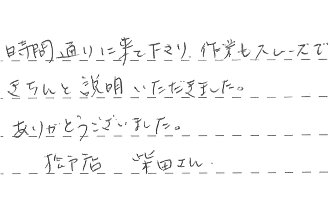 時間通りに来て下さり、作業もスムーズで
きちんと説明いただきました。
ありがとうございました。
松戸店 柴田さん